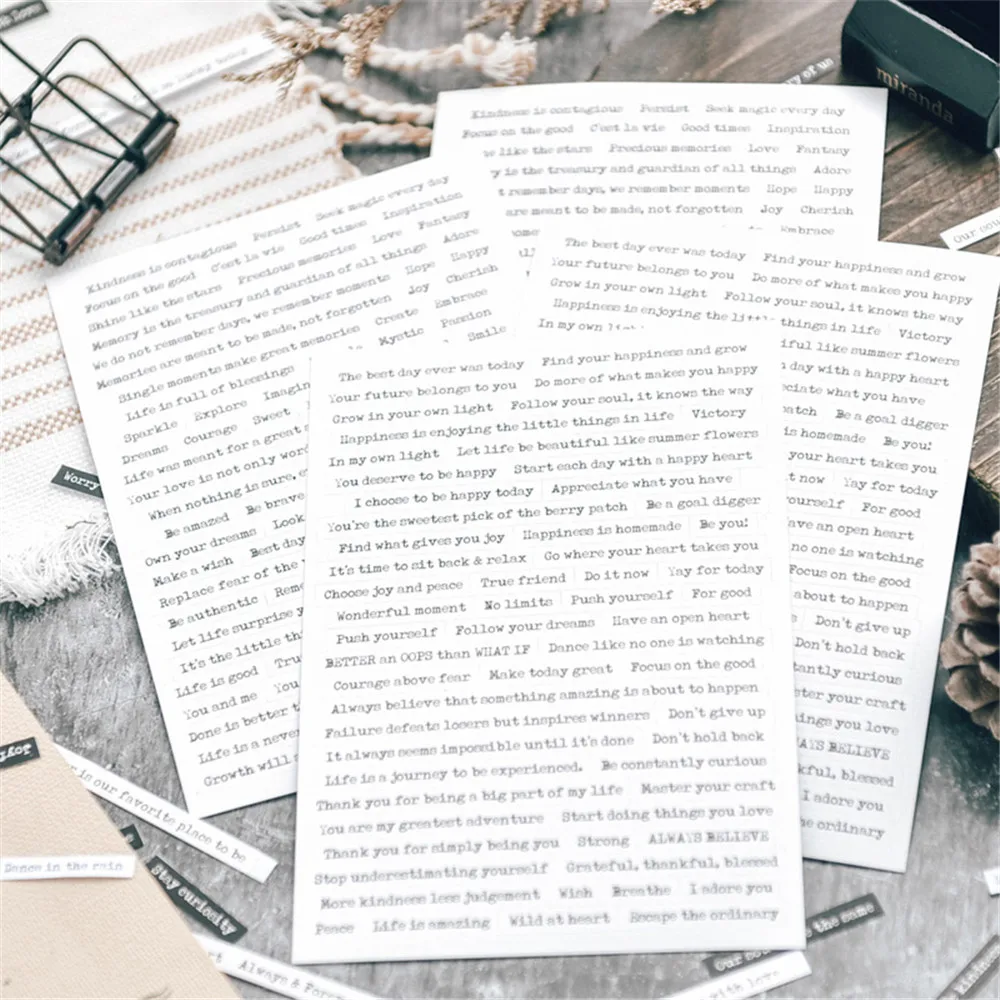 miranda
ry of us
Kindness is contagious Persist Seek magic every day
Focus on the good C'est la vie Good times Inspiration
like the stars Precious memories Love Fantasy
y is the treasury and guardian of all things Adore
t remember days, we remember moments Hope Happy
are meant to be made, not forgotten Joy Cherish
some Embrace
Kindness is contagious Persist Seek magic every day
Focus on the good C'est la vie Good times Inspiration
Shine like the stars Precious memories Love Fantasy
Memory is the treasury and guardian of all things Adore
We do not remember days, we remember moments Hope Happy
Memories are meant to be made, not forgotten Joy Cherish
Single moments make great memories Create Embrace
Life is full of blessings Mystic Passion
Sparkle Explore Imagin Smile
Dreams Courage Sweet
Life was meant for a great
Your love is not only word
When nothing is sure, e
Be amazed Be brave
Own your dreams Look
Make a wish Best day
Replace fear of the
Be authentic Reme
Let life surprise y
It's the little th
Life is good Tru
You and me You
Done is better t
Life is a never
Growth will
The best day ever was today Find your happiness and grow
Your future belongs to you Do more of what makes you happy
Grow in your own light Follow your soul, it knows the way
Happiness is enjoying the little things in life Victory
In my own iful like summer flowers
day with a happy heart
ciate what you have
patch Be a goal digger
is homemade Be you!
your heart takes you
it now Yay for today
yourself For good
ave an open heart
no one is watching
Focus on the good
about to happen
Don't give up
Don't hold back
tantly curious
ster your craft
ings you love
AYS BELIEVE
kful, blessed
I adore you
e ordinary
The best day ever was today Find your happiness and grow
Your future belongs to you Do more of what makes you happy
Grow in your own light Follow your soul, it knows the way
Happiness is enjoying the little things in life Victory
In my own light Let life be beautiful like summer flowers
You deserve to be happy Start each day with a happy heart
I choose to be happy today Appreciate what you have
You're the sweetest pick of the berry patch Be a goal digger
Find what gives you joy Happiness is homemade Be you!
It's time to sit back & relax Go where your heart takes you
Choose joy and peace True friend Do it now Yay for today
Wonderful moment No limits Push yourself For good
Push yourself Follow your dreams Have an open heart
BETTER an OOPS than WHAT IF Dance like no one is watching
Courage above fear Make today great Focus on the good
Always believe that something amazing is about to happen
Failure defeats losers but inspires winners Don't give up
It always seems impossible until it's done Don't hold back
Life is a journey to be experienced. Be constantly curious
Thank you for being a big part of my life Master your craft
You are my greatest adventure Start doing things you love
Thank you for simply being you Strong ALWAYS BELIEVE
Stop underestimating yourself Grateful, thankful, blessed
More kindness less judgement Wish Breathe I adore you
Peace Life is amazing Wild at heart Escape the ordinary
Worry
Joy
is our favorite place to be
Dance in the rain
Stay curiosity
Always & Fore
Our so the same
with love
Our sou
kindness